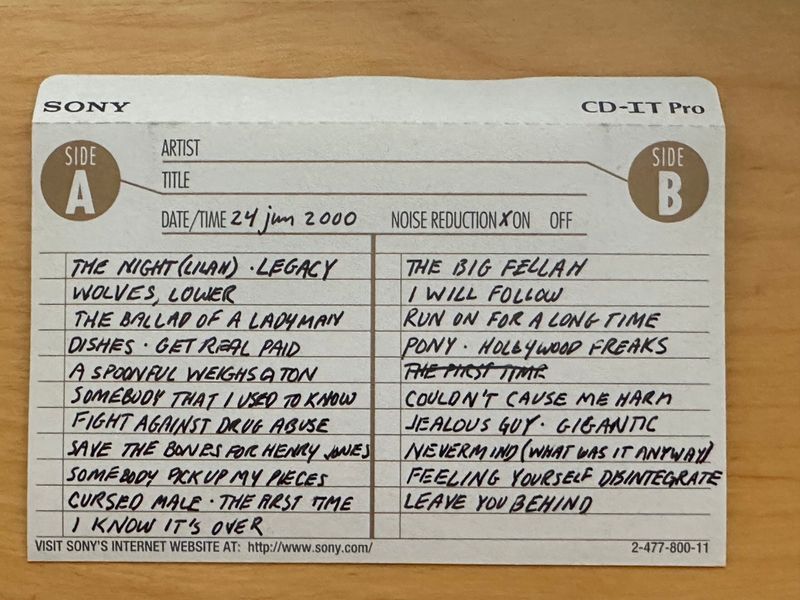 SONY
CD-IT Pro
SIDE A
ARTIST
TITLE
DATE/TIME 24 jun 2000 NOISE REDUCTION X ON OFF
SIDE B
THE NIGHT (LILAH) · LEGACY
WOLVES, LOWER
THE BALLAD OF A LADYMAN
DISHES · GET REAL PAID
A SPOONFUL WEIGHS A TON
SOMEBODY THAT I USED TO KNOW
FIGHT AGAINST DRUG ABUSE
SAVE THE BONES FOR HENRY JONES
SOMEBODY PICK UP MY PIECES
CURSED MALE · THE FIRST TIME
I KNOW IT'S OVER
THE BIG FELLAH
I WILL FOLLOW
RUN ON FOR A LONG TIME
PONY · HOLLYWOOD FREAKS
THE FIRST TIME
COULDN'T CAUSE ME HARM
JEALOUS GUY · GIGANTIC
NEVERMIND (WHAT WAS IT ANYWAY)
FEELING YOURSELF DISINTEGRATE
LEAVE YOU BEHIND
VISIT SONY'S INTERNET WEBSITE AT: http://www.sony.com/
2-477-800-11